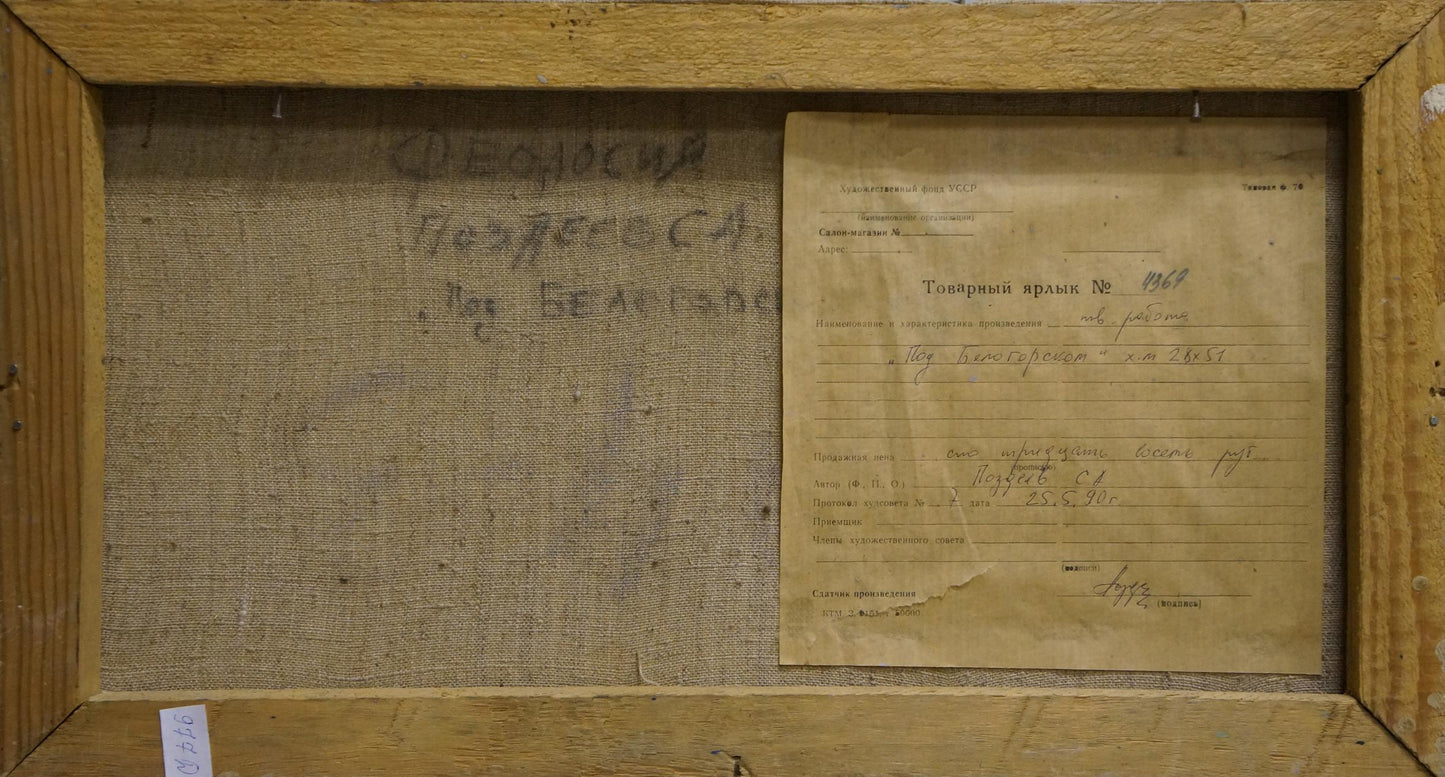 ФЕОДОСИЯ
ПОЗДЕЕВ С А.
„Под БЕЛОГОРСК
Художественный фонд УССР
Типовая ф. 70
(наименование организации)
Салон-магазин №
Адрес:
Товарный ярлык № 4369
Наименование и характеристика произведения тв. работа
„Под Белогорском" х.м 28х51
Продажная цена сто тридцать восемь руб
(прописью)
Автор (Ф., И., О.) Поздеев С А
Протокол худсовета № 7 дата 25.5.90г.
Приемщик
Члены художественного совета
(подписи)
Сдатчик произведения
(подпись)
КТМ З.